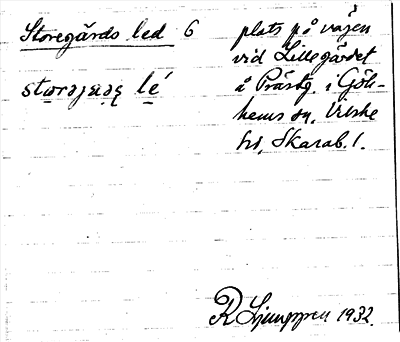 Storegårds led 6
plats på vägen
vid Lillegärdet
å Prästg. i Göte-
hems sn, Vilske
hd, Skarab. l.
lé
R Ljunggren 1932.